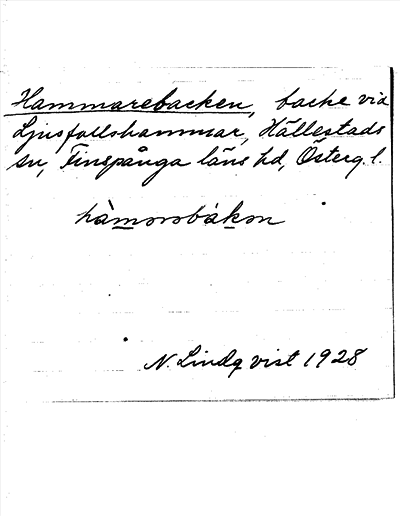 Hammarebacken, backe vid
Ljusfallshammar, Hällestads
sn, Finspånga läns hd, Österg. l.
hàmorobákon
N. Lindqvist 1928